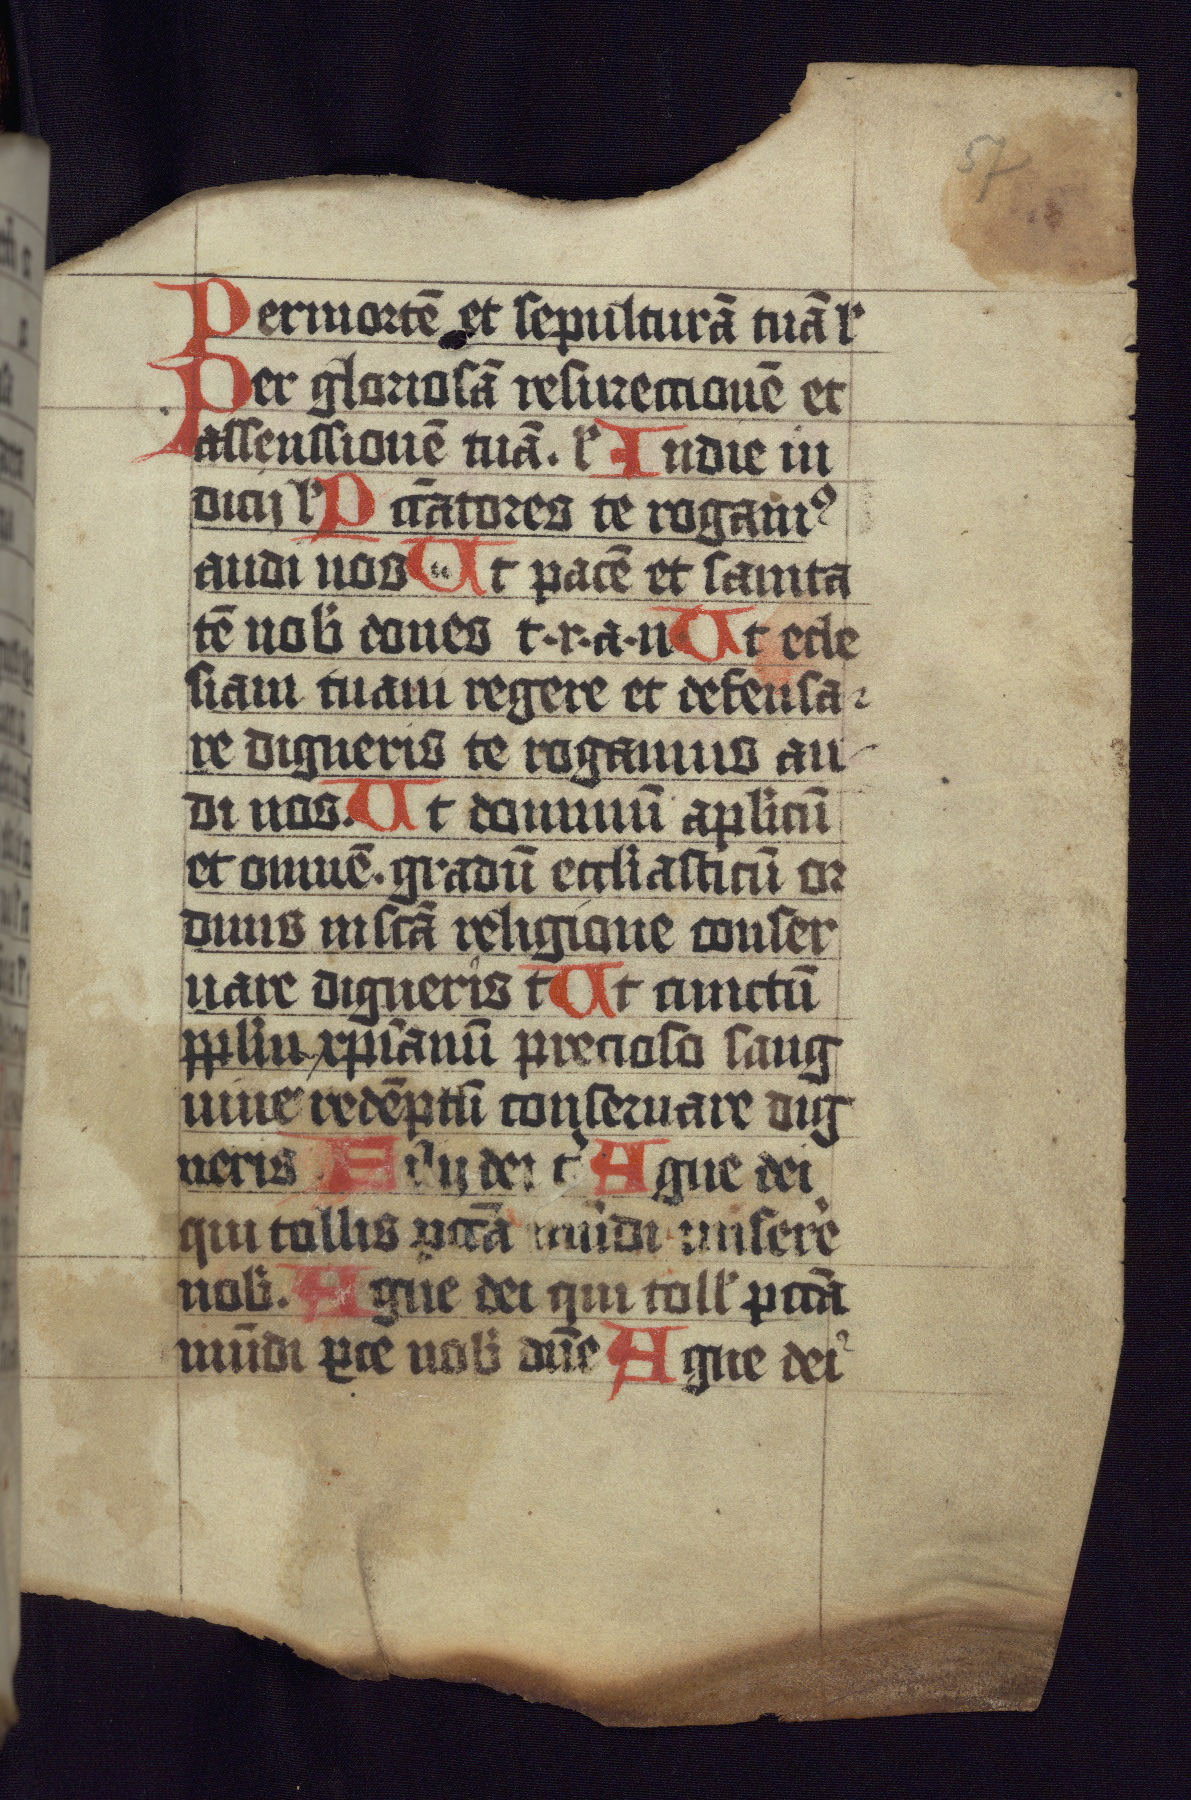 57
Permortē et sepulturā tuā ꝉ
Per gloriosā resurectionē et
assenssionē tuā. ꝉ In die iu
dicij ꝉ Pctātores te rogamꝰ
audi nos Ut pacē et sanita
tē nob̄ dones t·r·a·n Ut ecle
siam tuam regere et defensa
re digneris te rogamus au
di nos. Ut domnū aplicū
et omnē. gradū eccl̄iasticū or
dinis in sc̄ā religione conser
uare digneris t̄ Ut cunctū
ppl̄m xp̄ianū precioso sang
uine redēptū conseruare dig
neris Filij dei t̄ Agne dei
qui tollis pctā mūdi misere
nob̄. Agne dei qui toll̄ pctā
mūdi ꝑce nob̄ dn̄e Agne dei